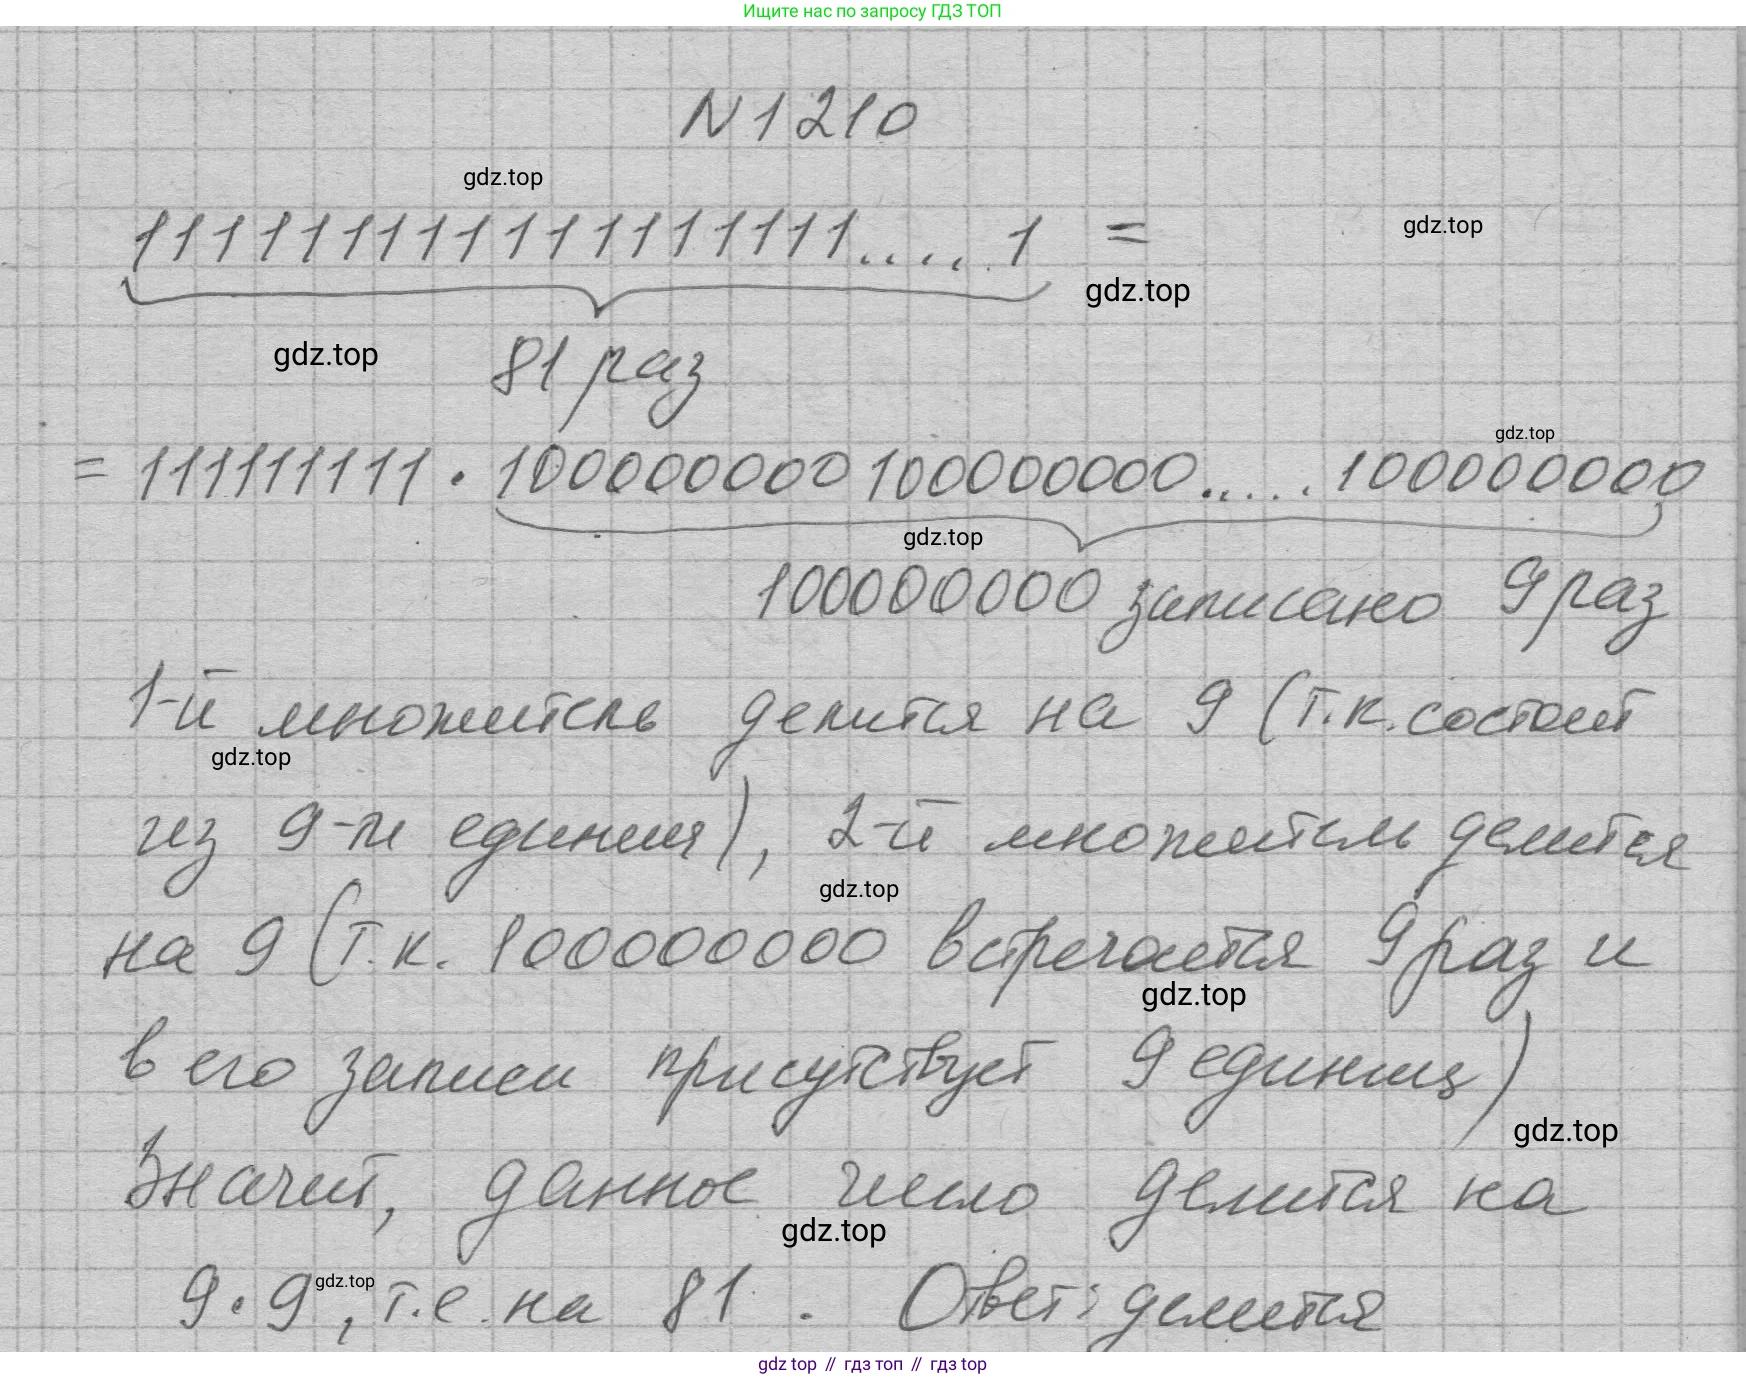 Ищите нас по запросу ГДЗ ТОП
N 1210
gdz.top
111111111111111111..... 1 =
gdz.top
gdz.top
gdz.top
81 раз
gdz.top
= 111111111 · 100000000 100000000..... 100000000
gdz.top
100000000 записано 9 раз
1-й множитель делится на 9 (т.к. состоит
gdz.top
из 9-ти единиц), 2-й множитель делится
gdz.top
на 9 (т.к. 100000000 встречается 9 раз и
gdz.top
в его записи присутствует 9 единиц)
gdz.top
Значит, данное число делится на
gdz.top
9 · 9, т.е. на 81. Ответ: делится
gdz.top
gdz top // гдз топ // гдз top